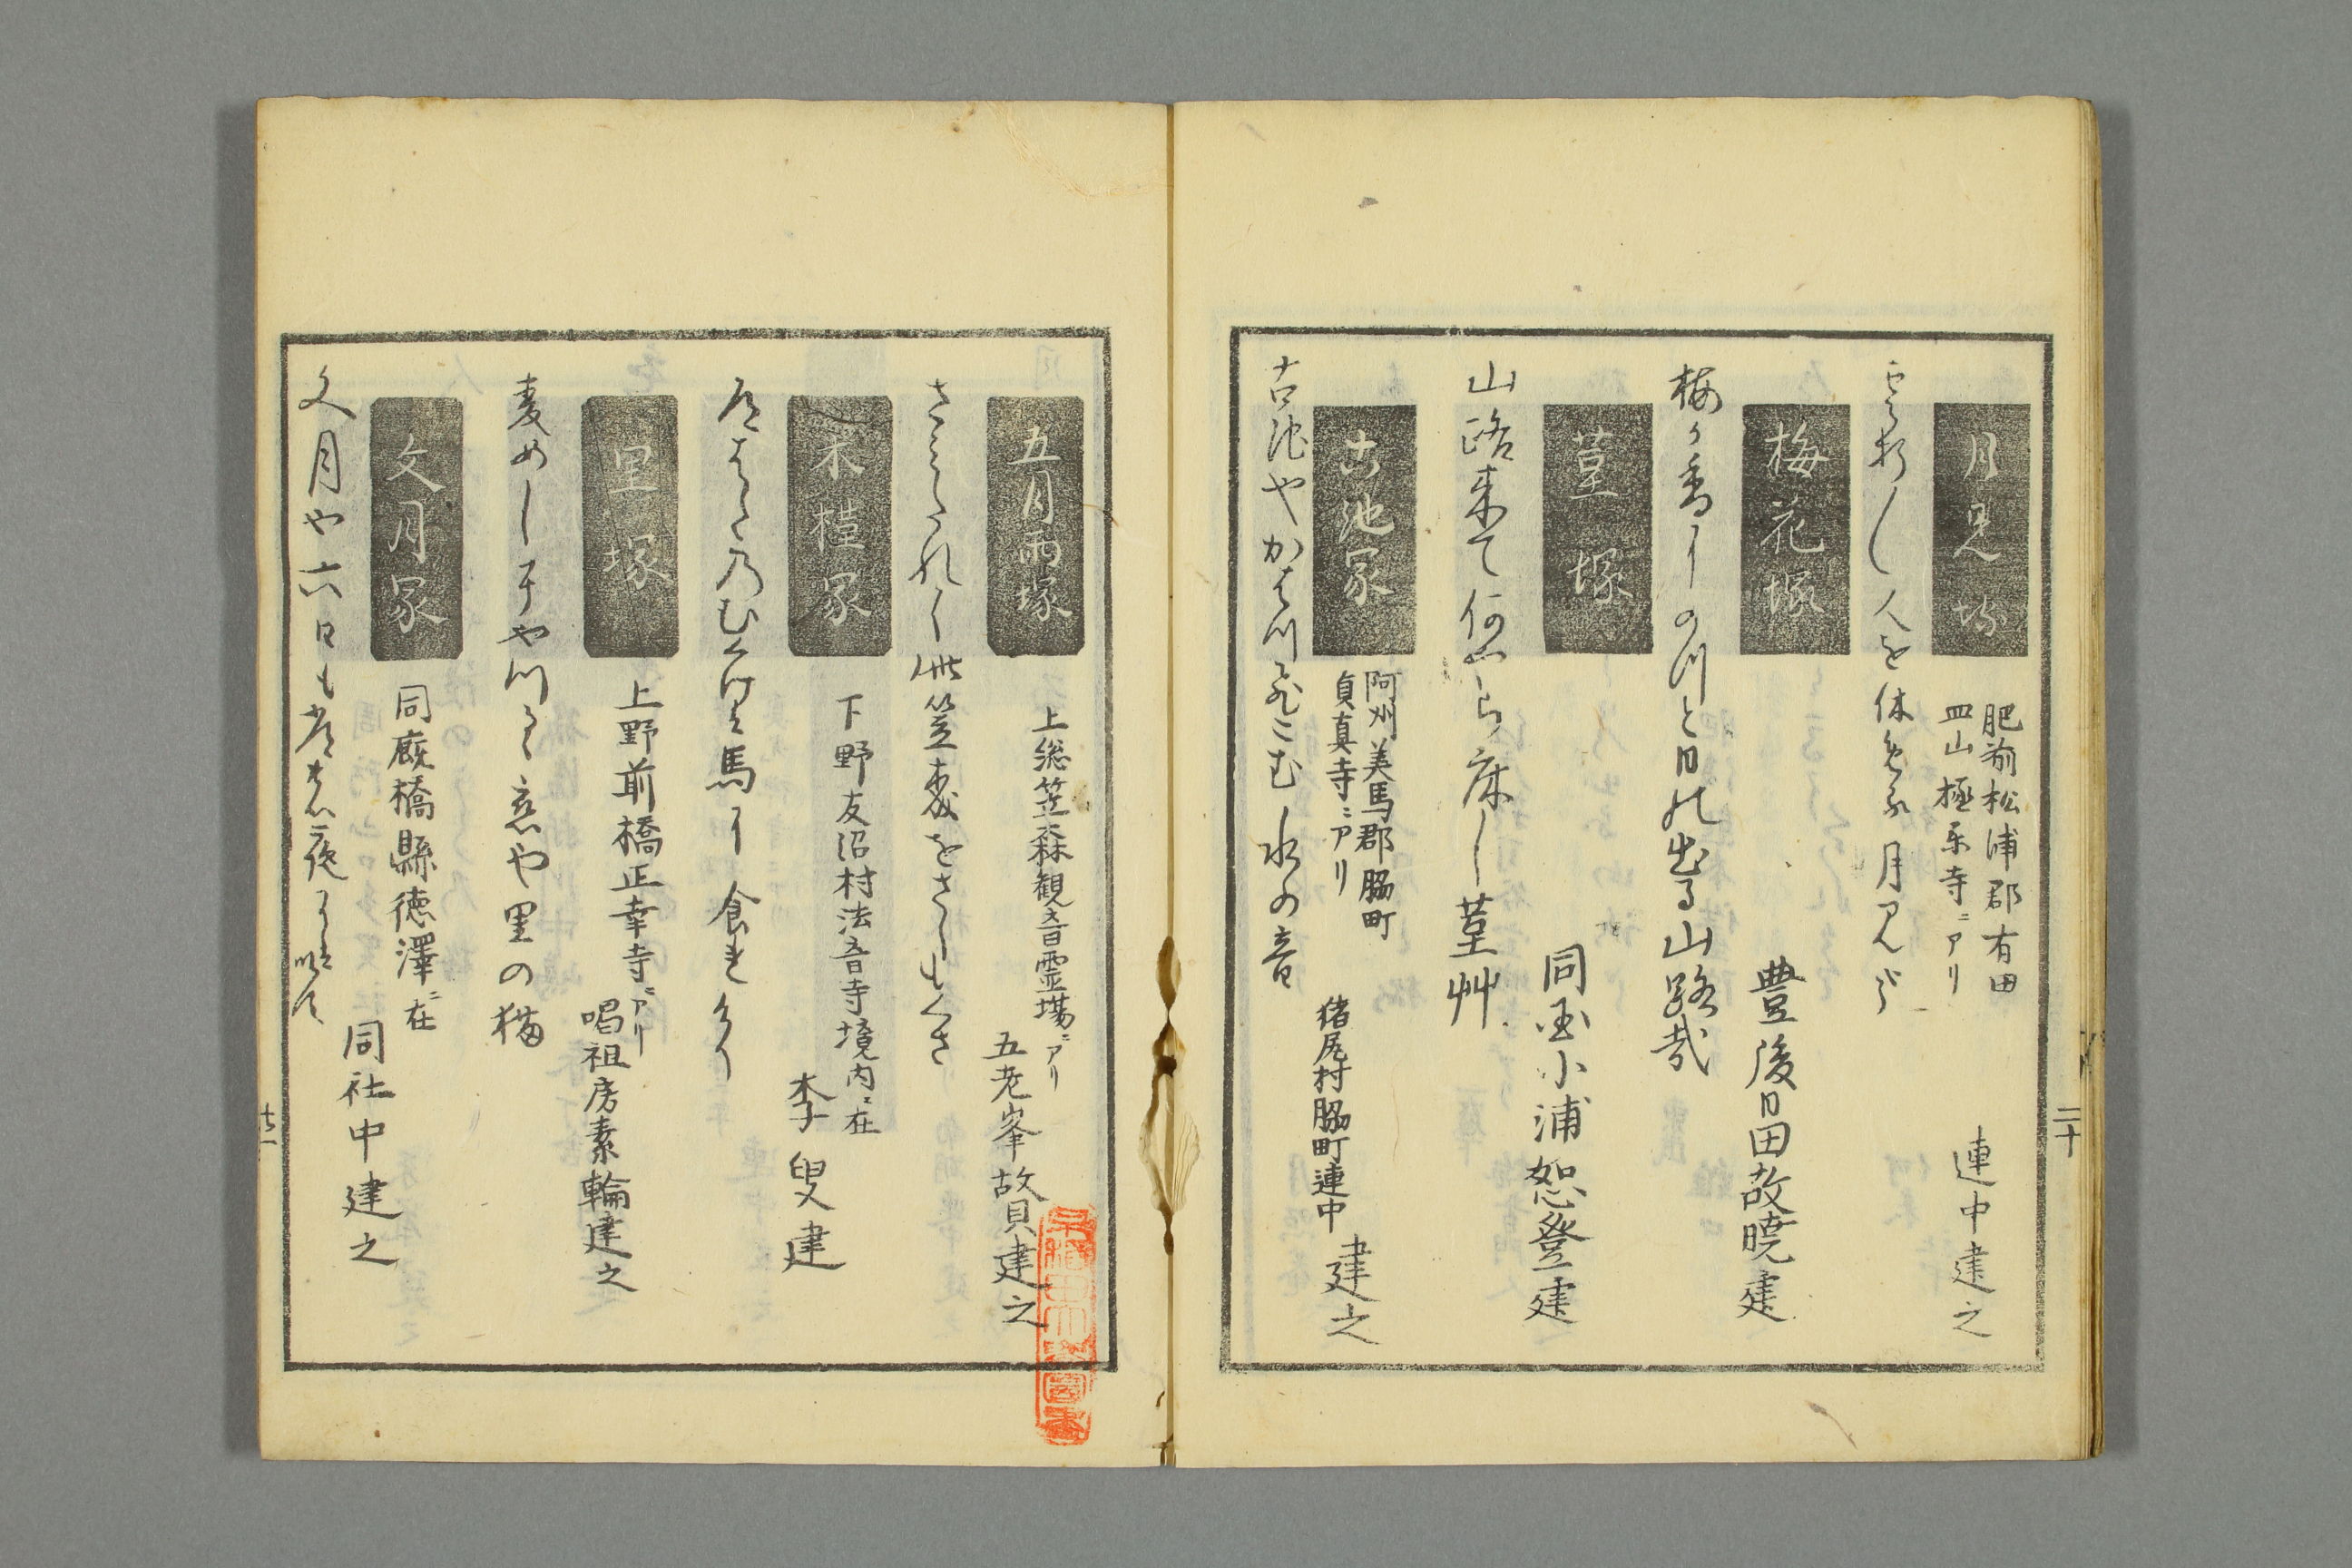 月見塚
肥前松浦郡有田
皿山極楽寺ニアリ
連中建之
雲折〳〵人を休むる月見かな
梅花塚
豊後日田故暁建
梅か香にのつと日の出る山路哉
菫塚
同国小浦恕登建
山路来て何やら床し菫艸
古池冢
阿州美馬郡脇町
貞真寺ニアリ
猪尻村脇町連中建之
古池やかはつ飛こむ水の音
二十
五月雨塚
上総笠森観音霊場ニアリ
五老峯故貝建之
此笠森をさしもくさ
木槿冢
下野友沼村法音寺境内ニ在
李叟建
道はたの むくけは馬に食れけり
里塚
上野前橋正幸寺ニアリ
唱祖房素輪建之
麦めしにやつるゝ恋や里の猫
文月冢
同厩橋縣徳澤ニ在
同社中建之
文月や六日も常の夜には似す
廿一
早稲田大学図書